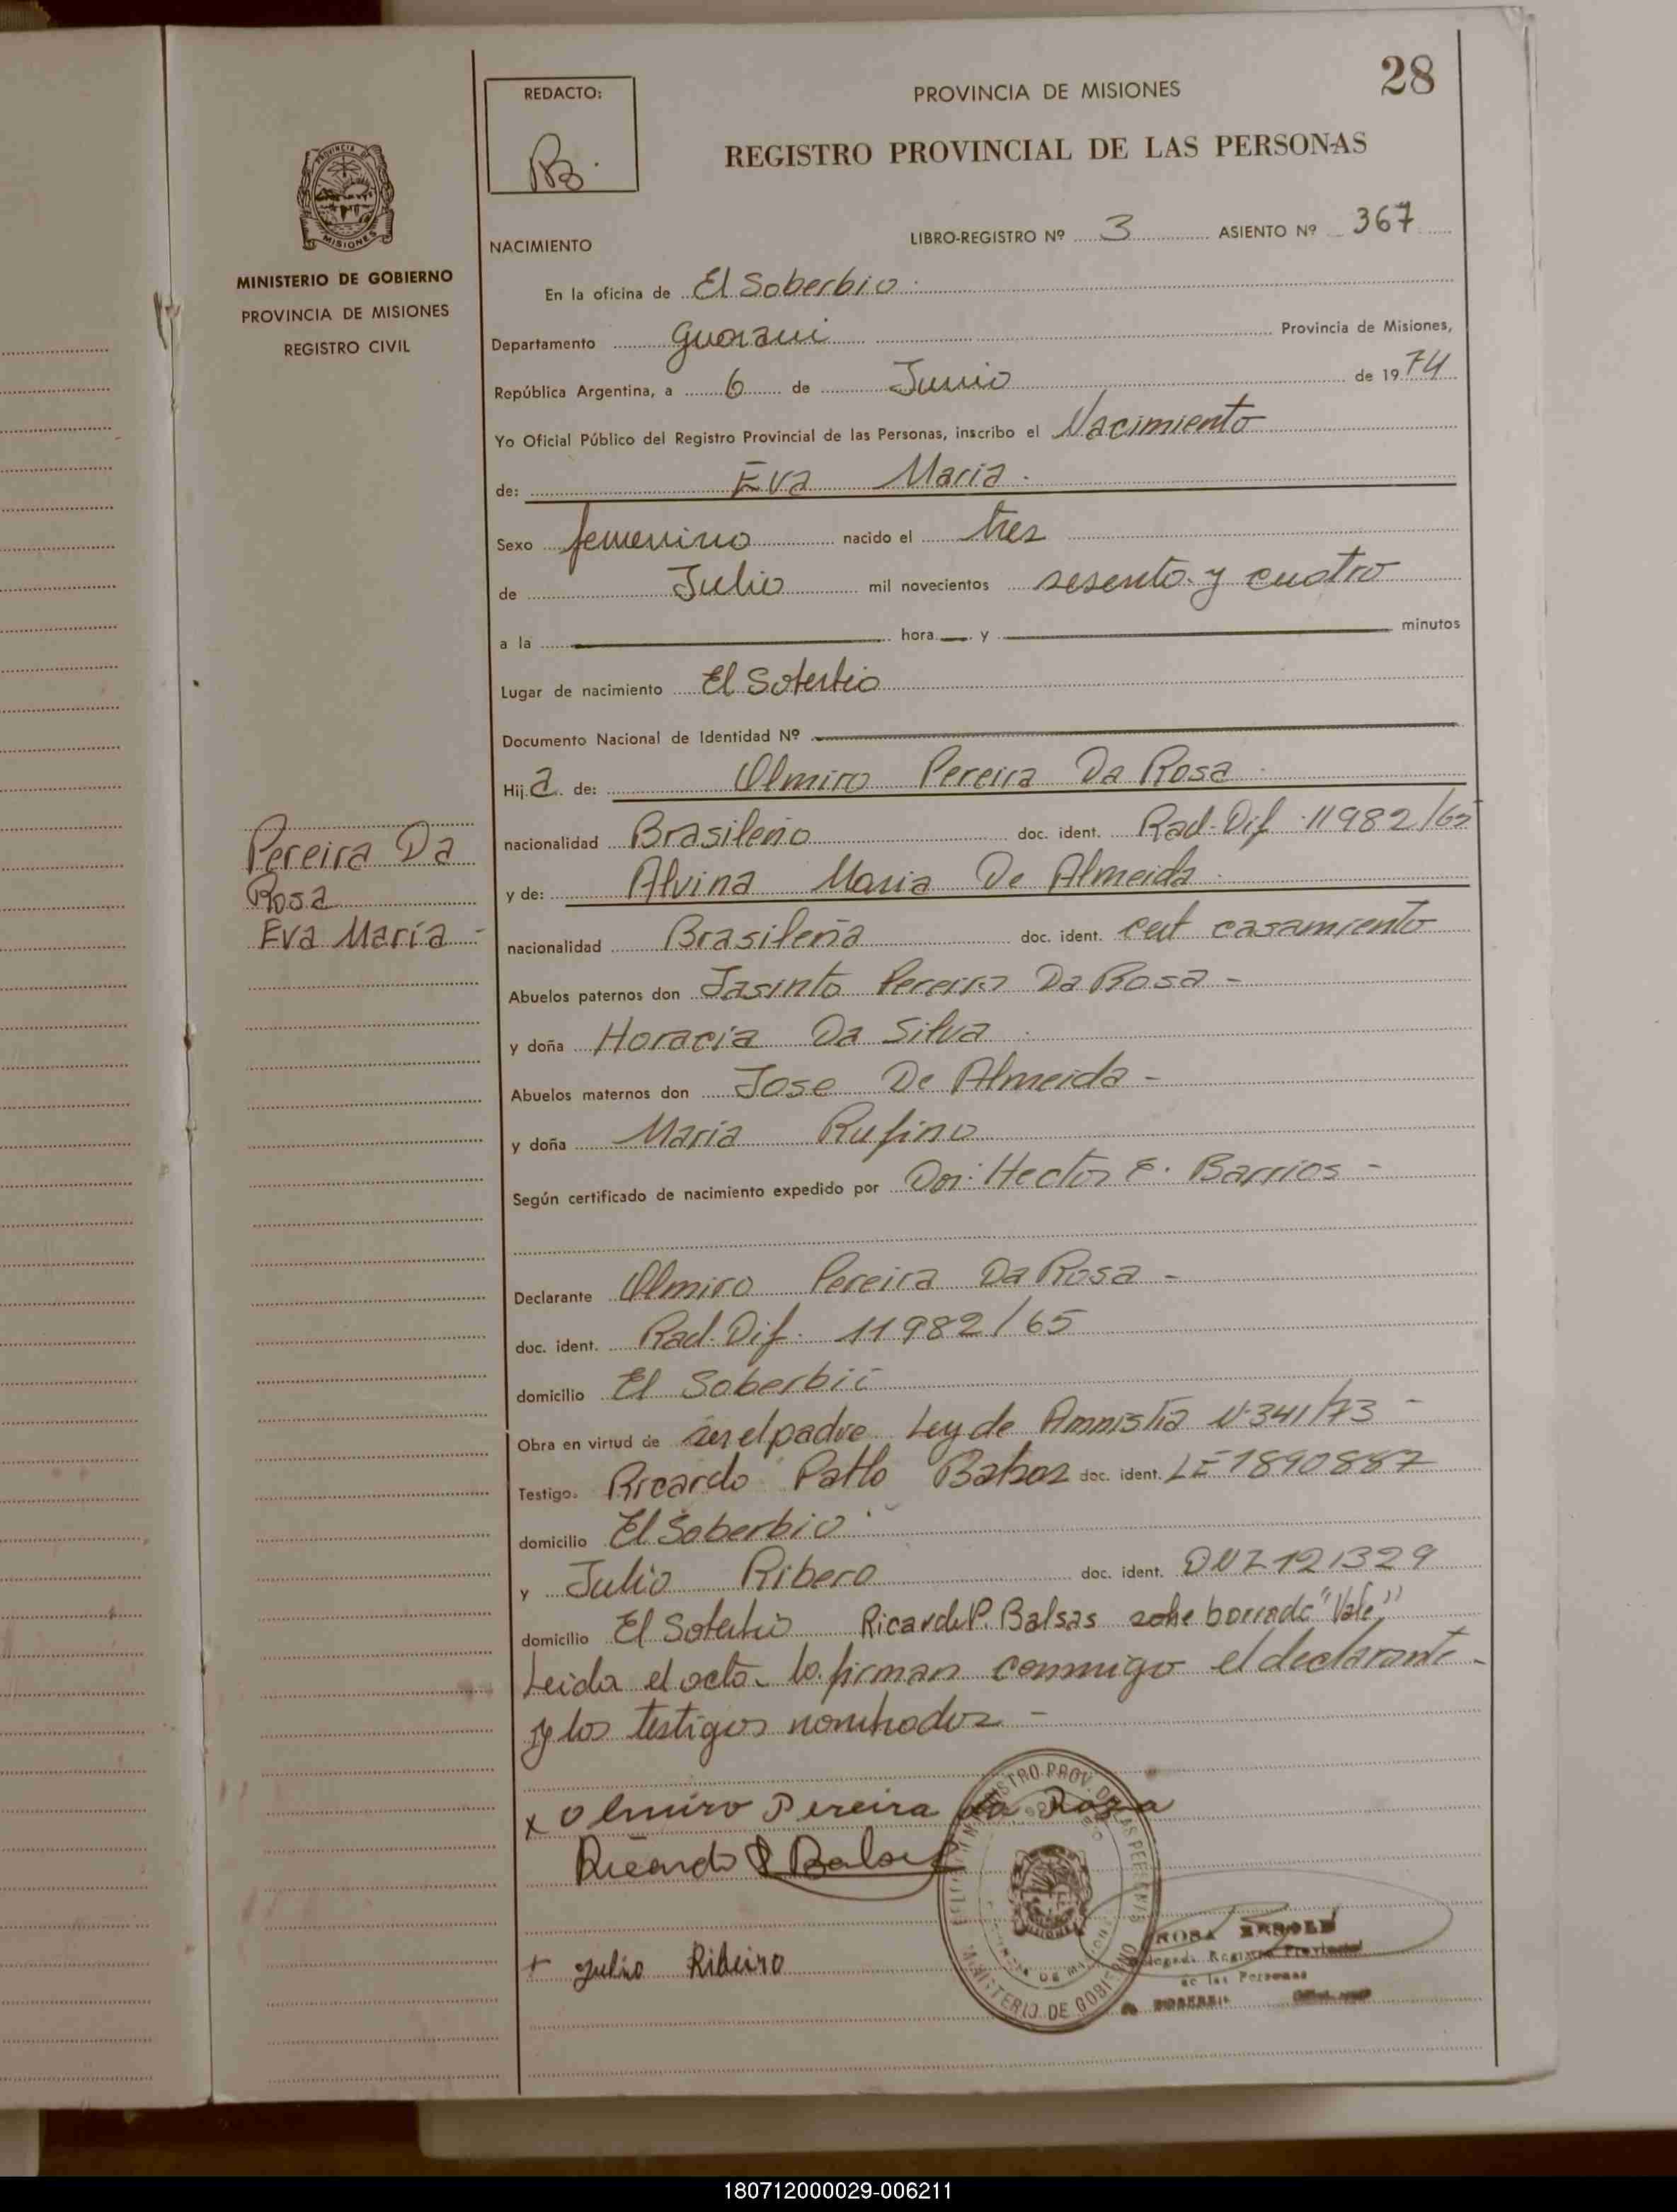 28
REDACTO:
PROVINCIA DE MISIONES
REGISTRO PROVINCIAL DE LAS PERSONAS
LIBRO-REGISTRO Nº 3 ASIENTO Nº 367
NACIMIENTO
MISIONES
MINISTERIO DE GOBIERNO
PROVINCIA DE MISIONES
REGISTRO CIVIL
En la oficina de El Soberbio
Departamento Guarani Provincia de Misiones,
República Argentina, a 6 de Junio de 1974
Yo Oficial Público del Registro Provincial de las Personas, inscribo el Nacimiento
de: Eva Maria
Sexo femenino nacido el tres
de Julio mil novecientos sesenta y cuatro
a la hora y minutos
Lugar de nacimiento El Soberbio
Documento Nacional de Identidad Nº
Hija de: Olmiro Pereira Da Rosa
nacionalidad Brasileño doc. ident. Rad. Dif. 11982/65
y de: Alvina Maria De Almeida
nacionalidad Brasileña doc. ident. cert casamiento
Pereira Da
Rosa
Eva María -
Abuelos paternos don Jasinto Pereira Da Rosa -
y doña Horacia Da Silva
Abuelos maternos don Jose De Almeida -
y doña Maria Rufino
Según certificado de nacimiento expedido por Hector E. Barrios -
Declarante Olmiro Pereira Da Rosa -
doc. ident. Rad. Dif. 11982/65
domicilio El Soberbio
Obra en virtud de ser el padre Ley de Amnistia Nº 341/73 -
Testigo. Ricardo Pablo doc. ident. LE 1890887
domicilio El Soberbio
y Julio Ribero doc. ident. DNI 121329
domicilio El Soberbio Ricardo P. Balsas sobre borrado "Vale"
Leida el acta lo firman conmigo el declarante
y los testigos nombrados -
x Olmiro Pereira da Roza
Ricardo P Balsas
+ Julio Ribeiro
MINISTERIO DE GOBIERNO
ROSA
de las Personas
180712000029-006211